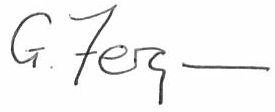 G. Ferg